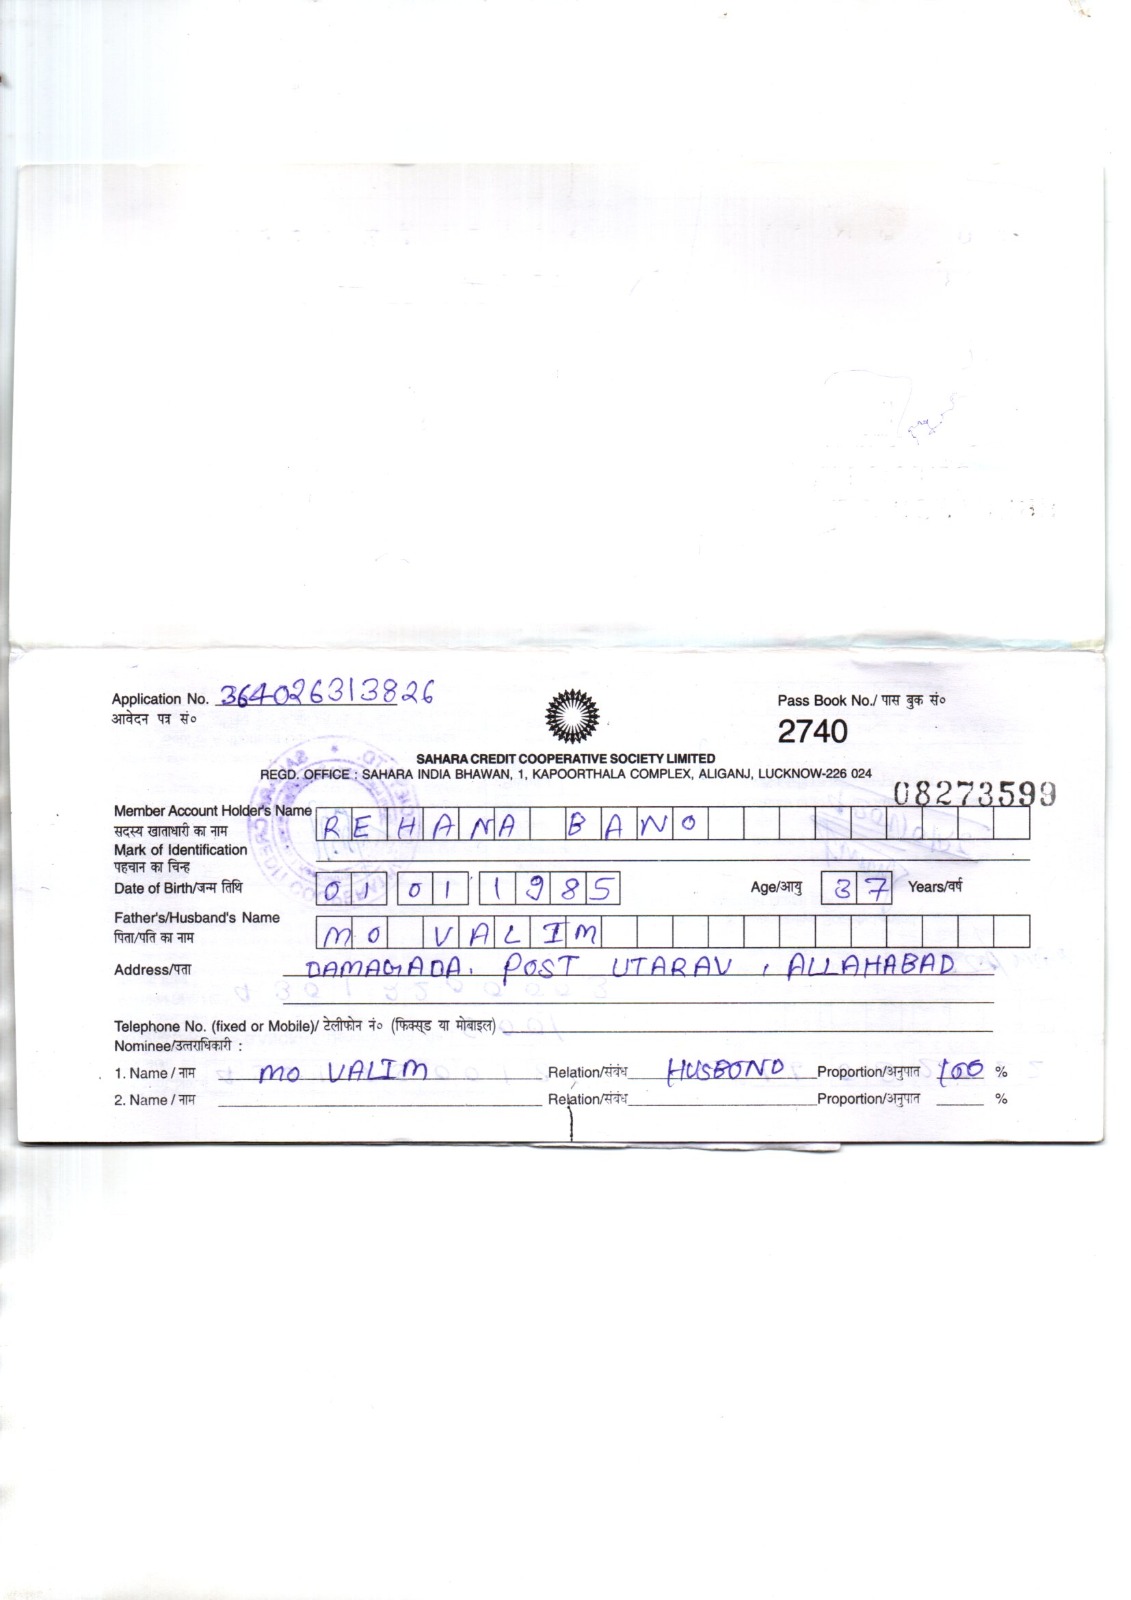 Application No. 364026313826
आवेदन पत्र सं०
Pass Book No./ पास बुक सं०
2740
SAHARA CREDIT COOPERATIVE SOCIETY LIMITED
REGD. OFFICE : SAHARA INDIA BHAWAN, 1, KAPOORTHALA COMPLEX, ALIGANJ, LUCKNOW-226 024
08273599
Member Account Holder's Name REHANA BANO
सदस्य खाताधारी का नाम
Mark of Identification
पहचान का चिन्ह
Date of Birth/जन्म तिथि 01 01 1985 Age/आयु 37 Years/वर्ष
Father's/Husband's Name MO VALIM
पिता/पति का नाम
Address/पता DAMAGADA. POST UTARAV , ALLAHABAD
Telephone No. (fixed or Mobile)/ टेलीफोन नं० (फिक्सड या मोबाइल)
Nominee/उत्तराधिकारी :
1. Name / नाम MO VALIM Relation/संबंध HUSBOND Proportion/अनुपात 100 %
2. Name / नाम Relation/संबंध Proportion/अनुपात %